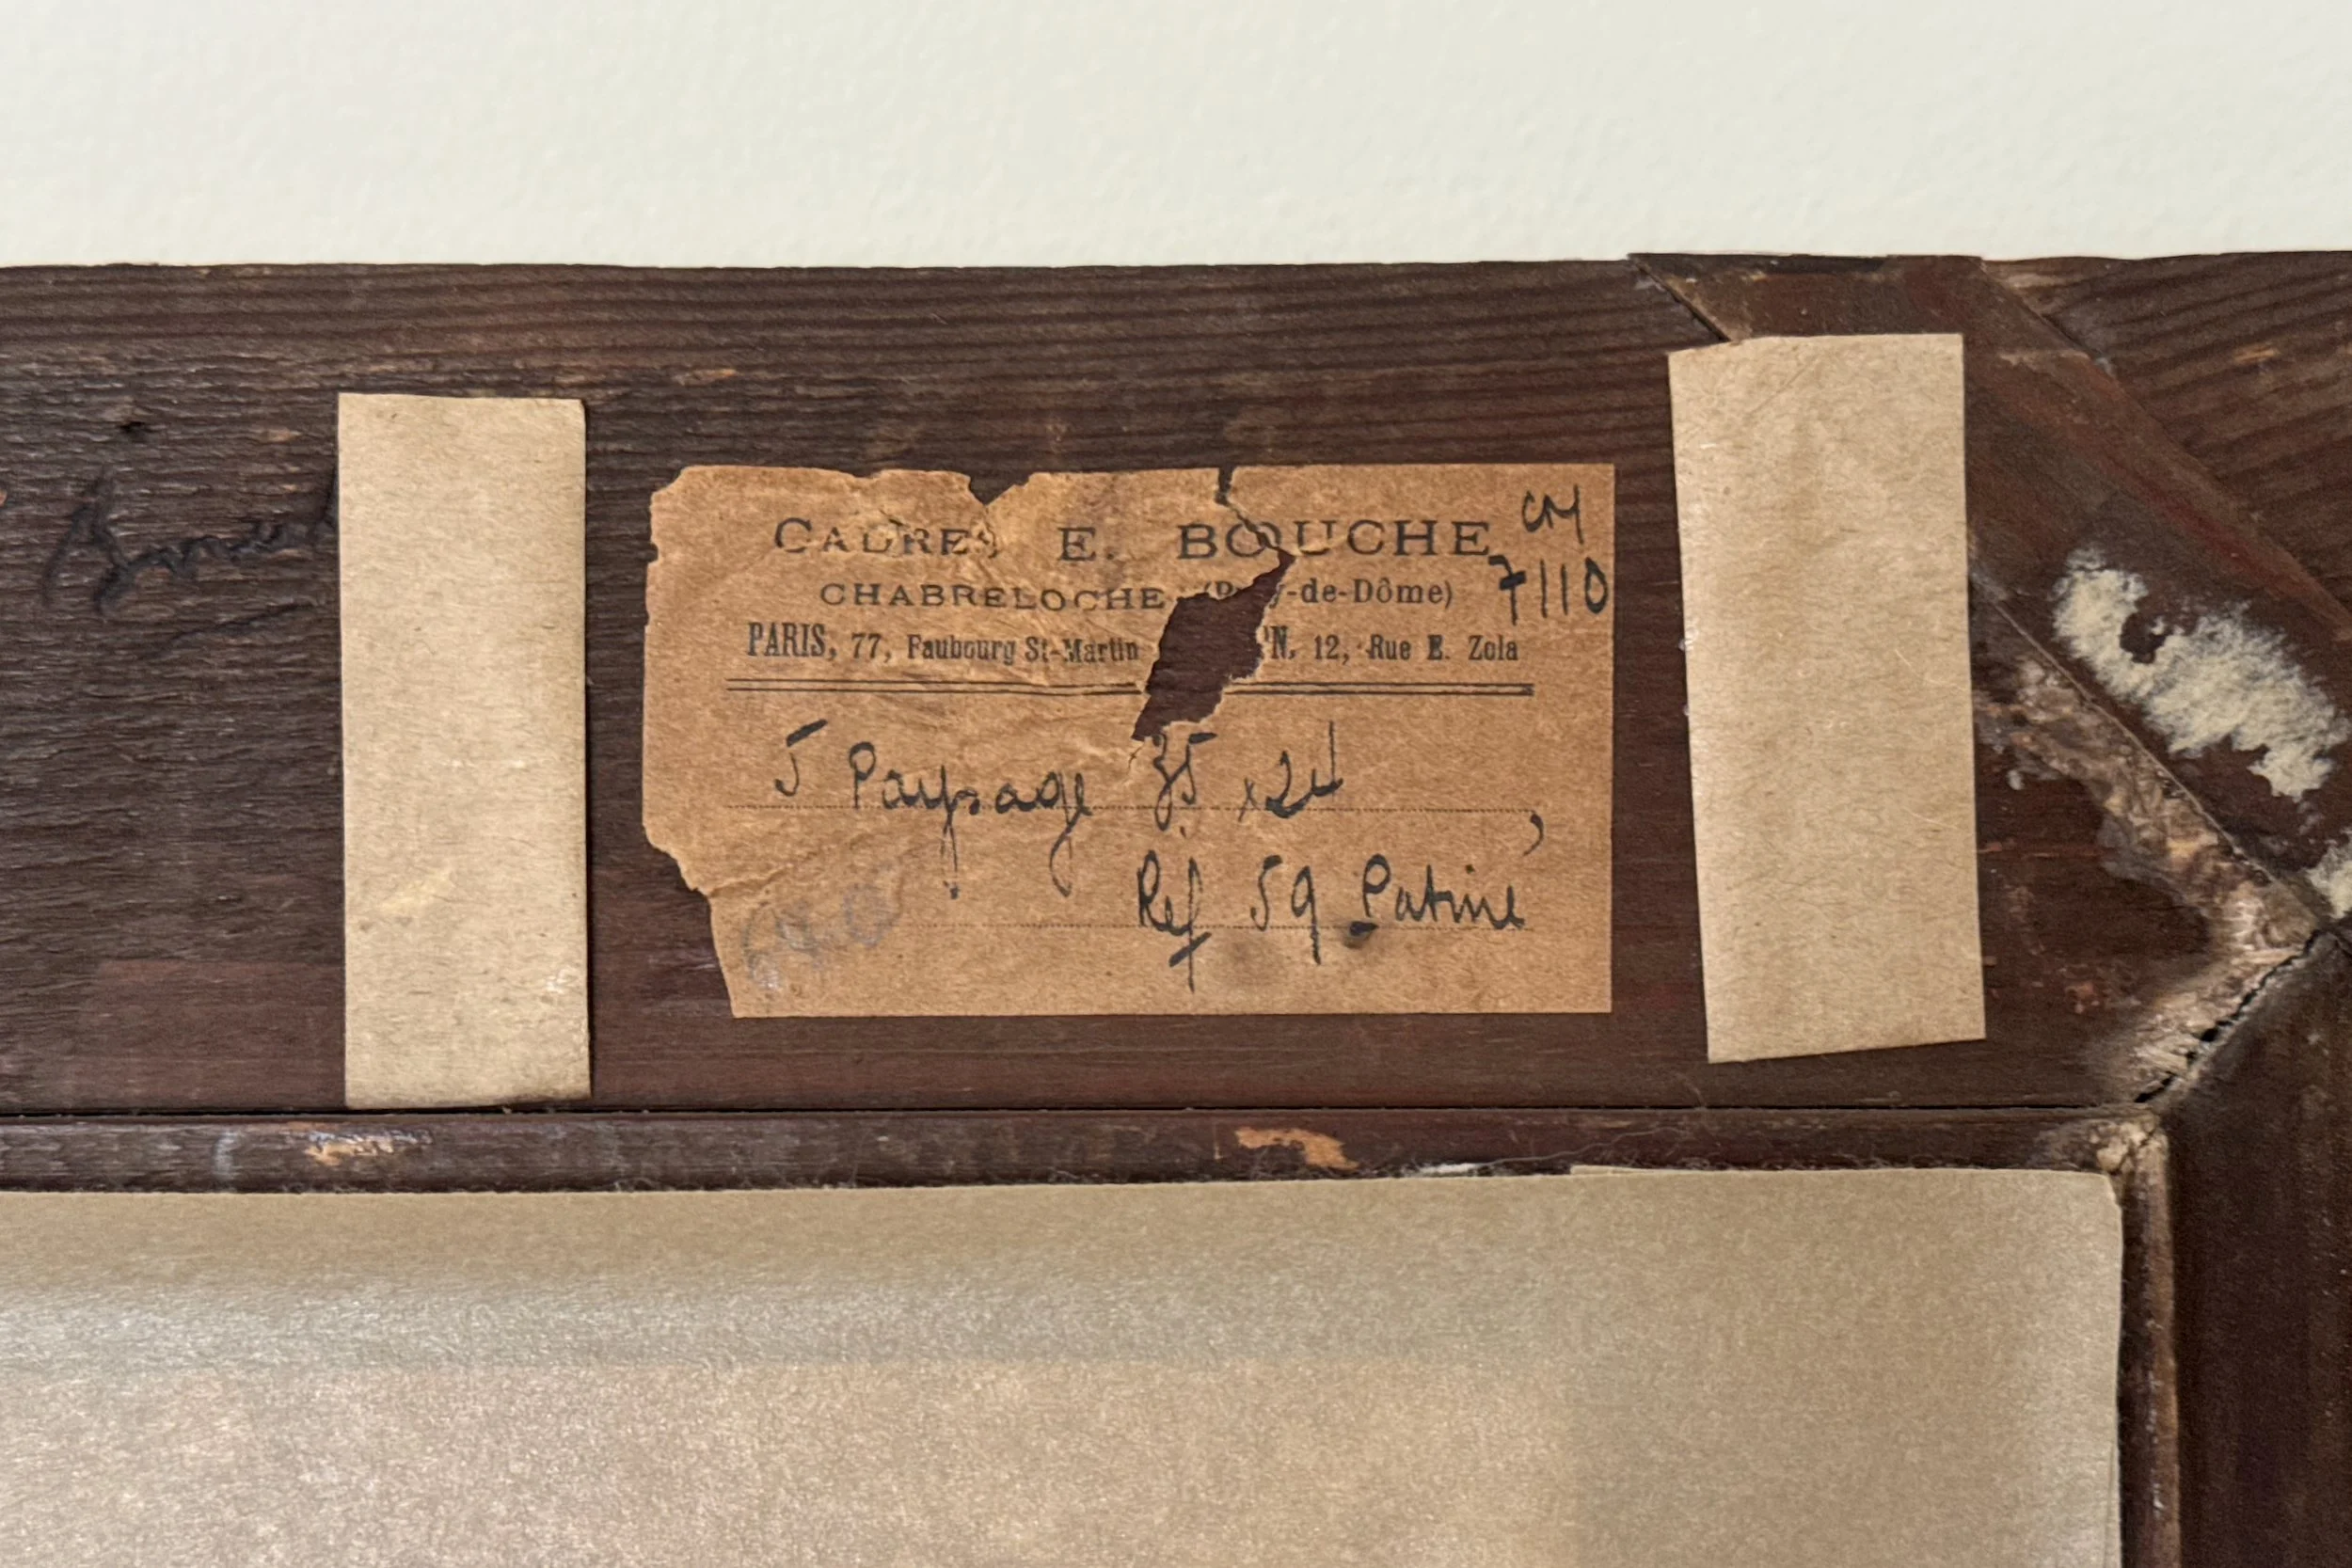 CADRES E. BOUCHE
CM
7110
CHABRELOCHE (Puy-de-Dôme)
PARIS, 77, Faubourg St-Martin N, 12, Rue E. Zola
5 Paysage 35 x 24
Ref 59 Patine